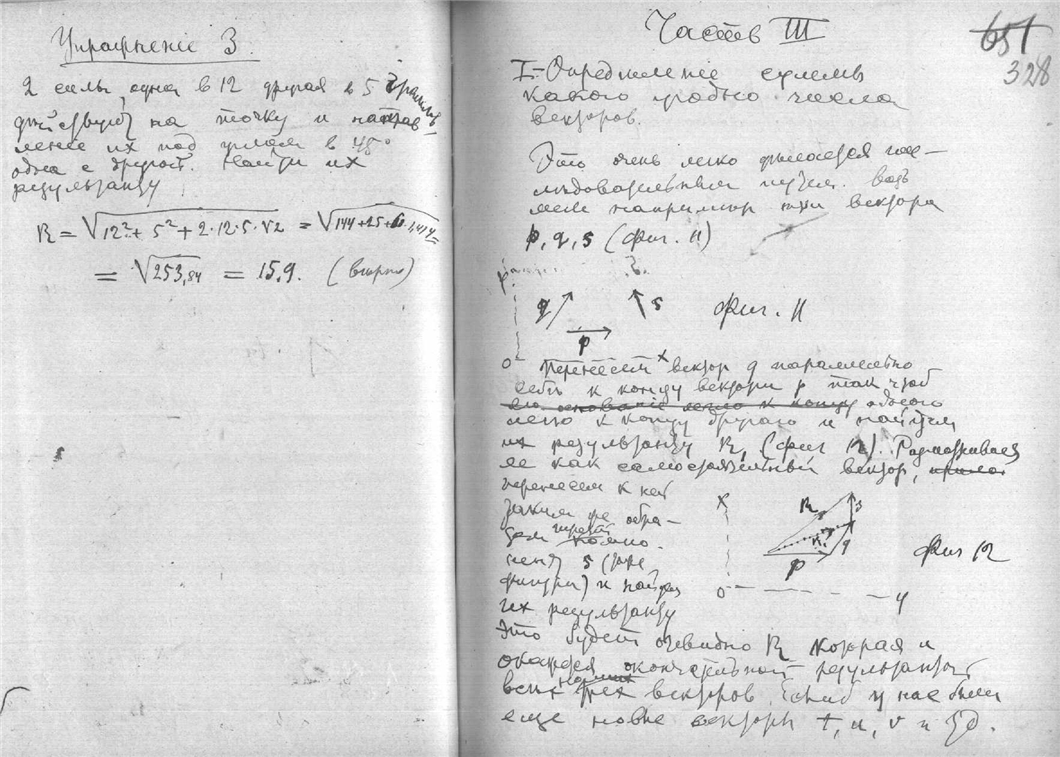 Упражненіе 3.
2 силы, одна в 12 другая в 5 грамм
действуют на точку и направ-
леніе их под углом в 45°
одна с другой. Найти их
результанту
R = √12² + 5² + 2·12·5·√2 = √144+25+
= √253,84 = 15,9. (вѣрно)
651
328
Часть III
I. Опредѣленіе суммы
какого угодно числа
векторов.
Это очень легко дѣлается пос-
лѣдовательным путем. Возь
мем например три вектора
p, q, s (фиг. 11)
q s Фиг. 11
p
0 Перенесем вектор q параллельно
себѣ к концу вектора p так чтоб
его основаніе легло к концу
легло к концу другого и найдем
их результанту R, (фиг 12). Разматривая
ее как самостоятельный вектор,
перенесем к ней
таким же обра-
зом третій
s (там же
фигура) и найдем
их результанту
X R s
R₁ q Фиг 12
p
0 y
Это будет очевидно R которая и
окажется окончательной результантой
всѣх трех векторов. Если б у нас были
еще новые векторы t, u, v и т.д.